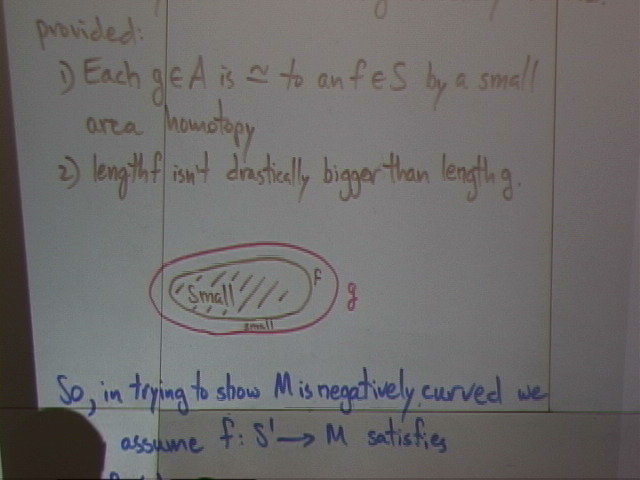 provided:
1) Each g ∈ A is ≃ to an f ∈ S by a small
area homotopy
2) length f isn't drastically bigger than length g.
f
Small
g
small
So, in trying to show M is negatively curved we
assume f: S¹ → M satisfies